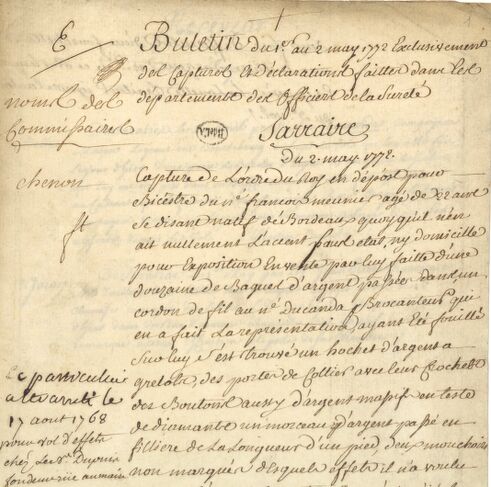 E
Buletin du 1er. au 2 may 1772 Exclusivement
des Captures & déclarations faittes dans les
departements des officiers de la Sureté
noms des
Commissaires
Sarraire
Du 2. may. 1772.
chenon
Capture de L'ordre du Roy en dépost pour
Bicêstre du né. françois meunier agé de 22 ans
Se disant natif de Bordeaux quoyqu'il n'en
ait nullement L'accent sans etat, ny domicille
pour Exposition En vente par luy faitte d'une
douzaine de Bagues d'argent passée dans un
cordon de fil au né. Ducanda Brocanteur qui
en a fait La representation, ayant Eté fouillé
Sur luy s'est trouvé un hochet d'argent a
grelots, des portes de Collier avec leur Crochets
des Boutons aussy d'argent massif en teste
de diamants un morceau d'argent passé en
filliere de La Longueur d'un pied, deux mouchoirs
non marqués desquels effets il n'a voulu
Ce particulier
a eté arrêté le
17 aout 1768
pour vol d'effets
chez Le Sr.